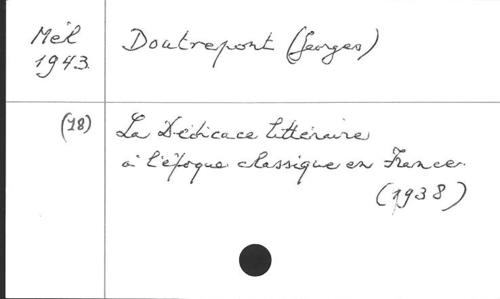 Mél
1943.
Doutrepont (Georges)
(18)
La Dédicace littéraire
à l'époque classique en France.
(1938)